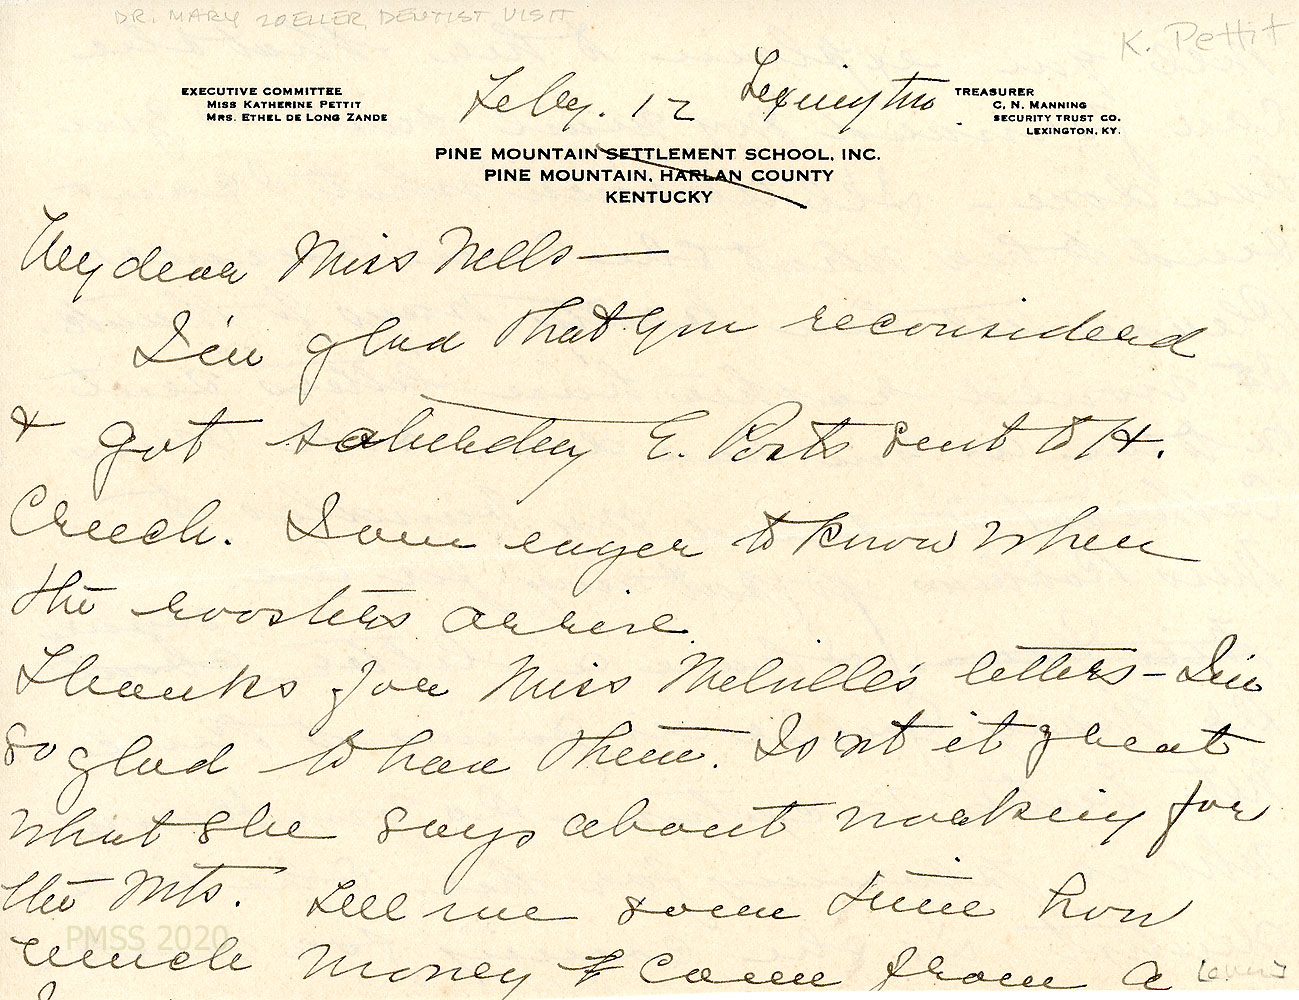 DR. MARY ZOELLER, DENTIST VISIT
K. Pettit
EXECUTIVE COMMITTEE
MISS KATHERINE PETTIT
MRS. ETHEL DE LONG ZANDE
Feby. 12 Lexington
TREASURER
C. N. MANNING
SECURITY TRUST CO.
LEXINGTON, KY.
PINE MOUNTAIN SETTLEMENT SCHOOL, INC.
PINE MOUNTAIN, HARLAN COUNTY
KENTUCKY
My dear Miss Wells—
I'm glad that you reconsidered
& got Saturday E. Posts sent to H.
Creech. I am eager to know when
the roosters arrive.
Thanks for Miss Melville's letters – I'm
so glad to have them. Is'nt it great
what she says about working for
the Mts. Tell me some time how
much money to come from a
PMSS 2020